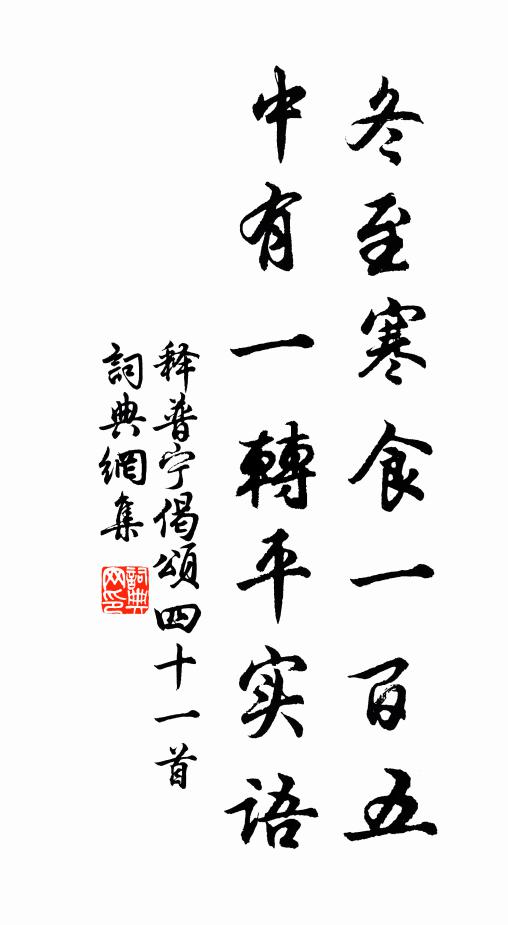 冬至寒食一百五
中有一轉平实語
释普宁偈頌四十一首
詞典網集
詞典
网印